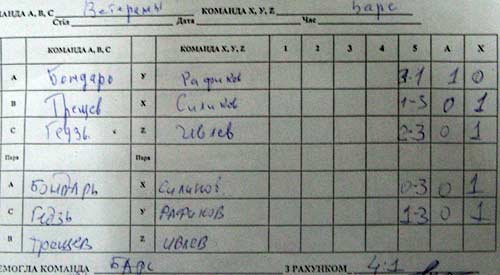 АНДА А, В, С Ветераны КОМАНДА X, У, Z Барс
Стіл Дата Час
КОМАНДА А, В, С КОМАНДА X, У, Z 1 2 3 4 5 А X
А Бондарь У Рафиков 3-1 1 0
В Трещев X Силиков 1-3 0 1
С Гедзь Z Ивлев 2-3 0 1
Пара Пара
А Бондарь X Силиков 0-3 0 1
С Гедзь У РАФИКОВ 1-3 0 1
В Трещев Z ИВЛЕВ
ЕМОГЛА КОМАНДА БАРС З РАХУНКОМ 4:1